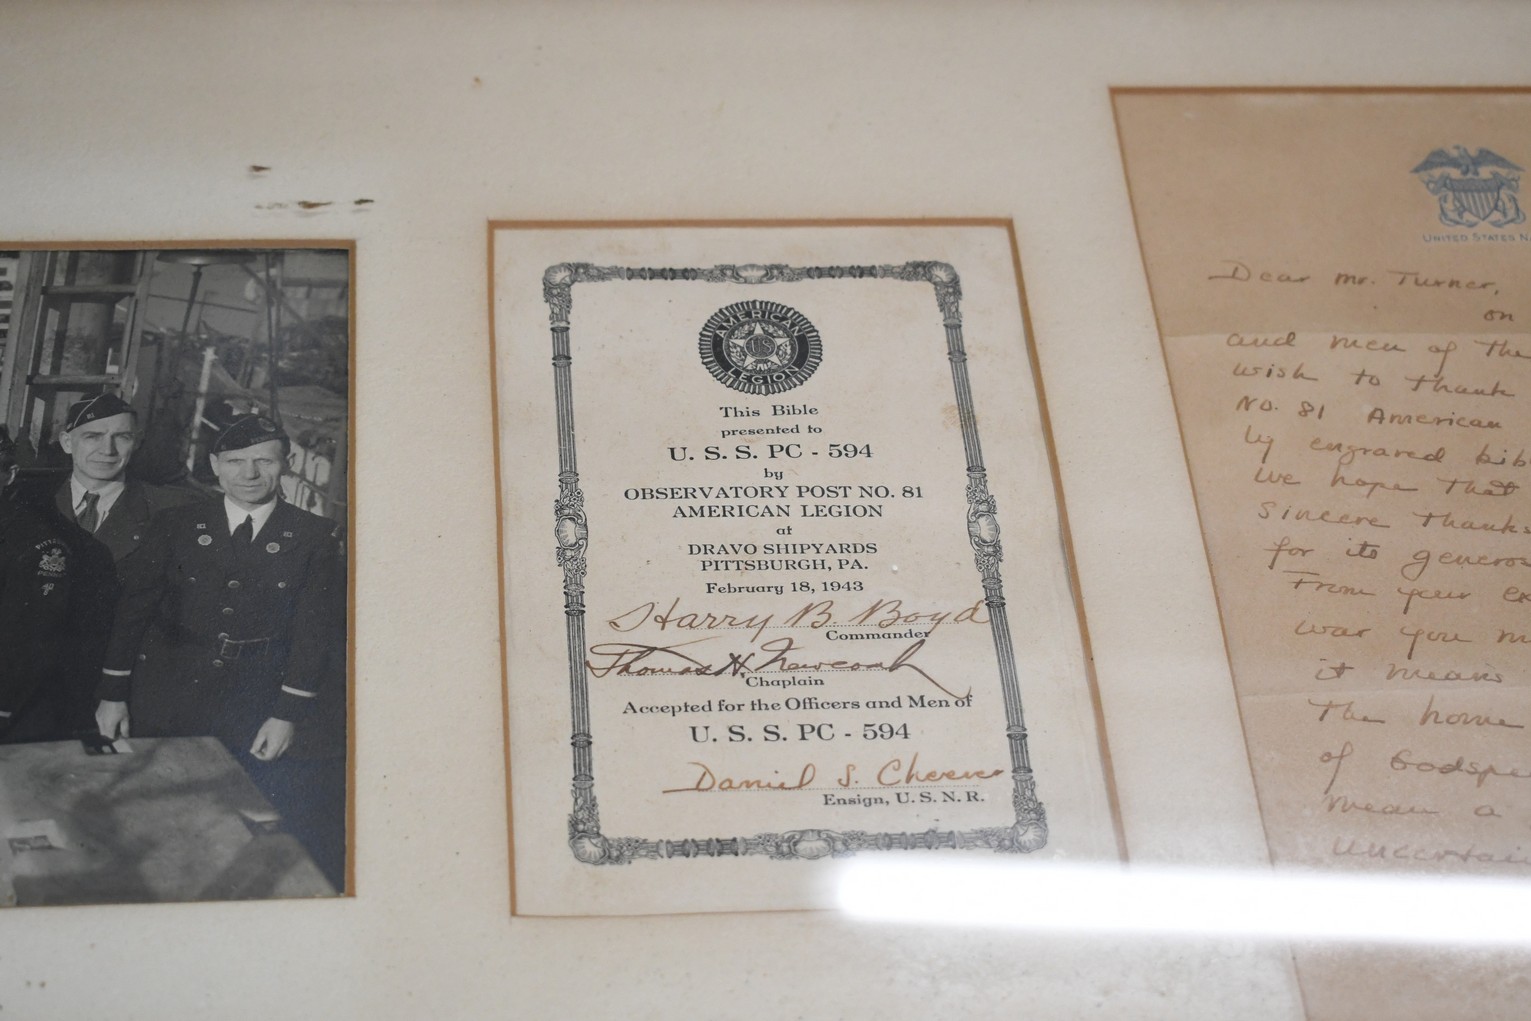 AMERICAN
US
LEGION
This Bible
presented to
U. S. S. PC - 594
by
OBSERVATORY POST NO. 81
AMERICAN LEGION
at
DRAVO SHIPYARDS
PITTSBURGH, PA.
February 18, 1943
Harry B. Boyd
Commander
Thomas H.
Chaplain
Accepted for the Officers and Men of
U. S. S. PC - 594
Daniel S. Cheever
Ensign, U. S. N. R.
UNITED STATES
Dear Mr. Turner,
on
and men of the
wish to thank
No. 81 American
ly engraved
We hope that
sincere thanks
for its
From your
war you
it means
the home
of
mean a